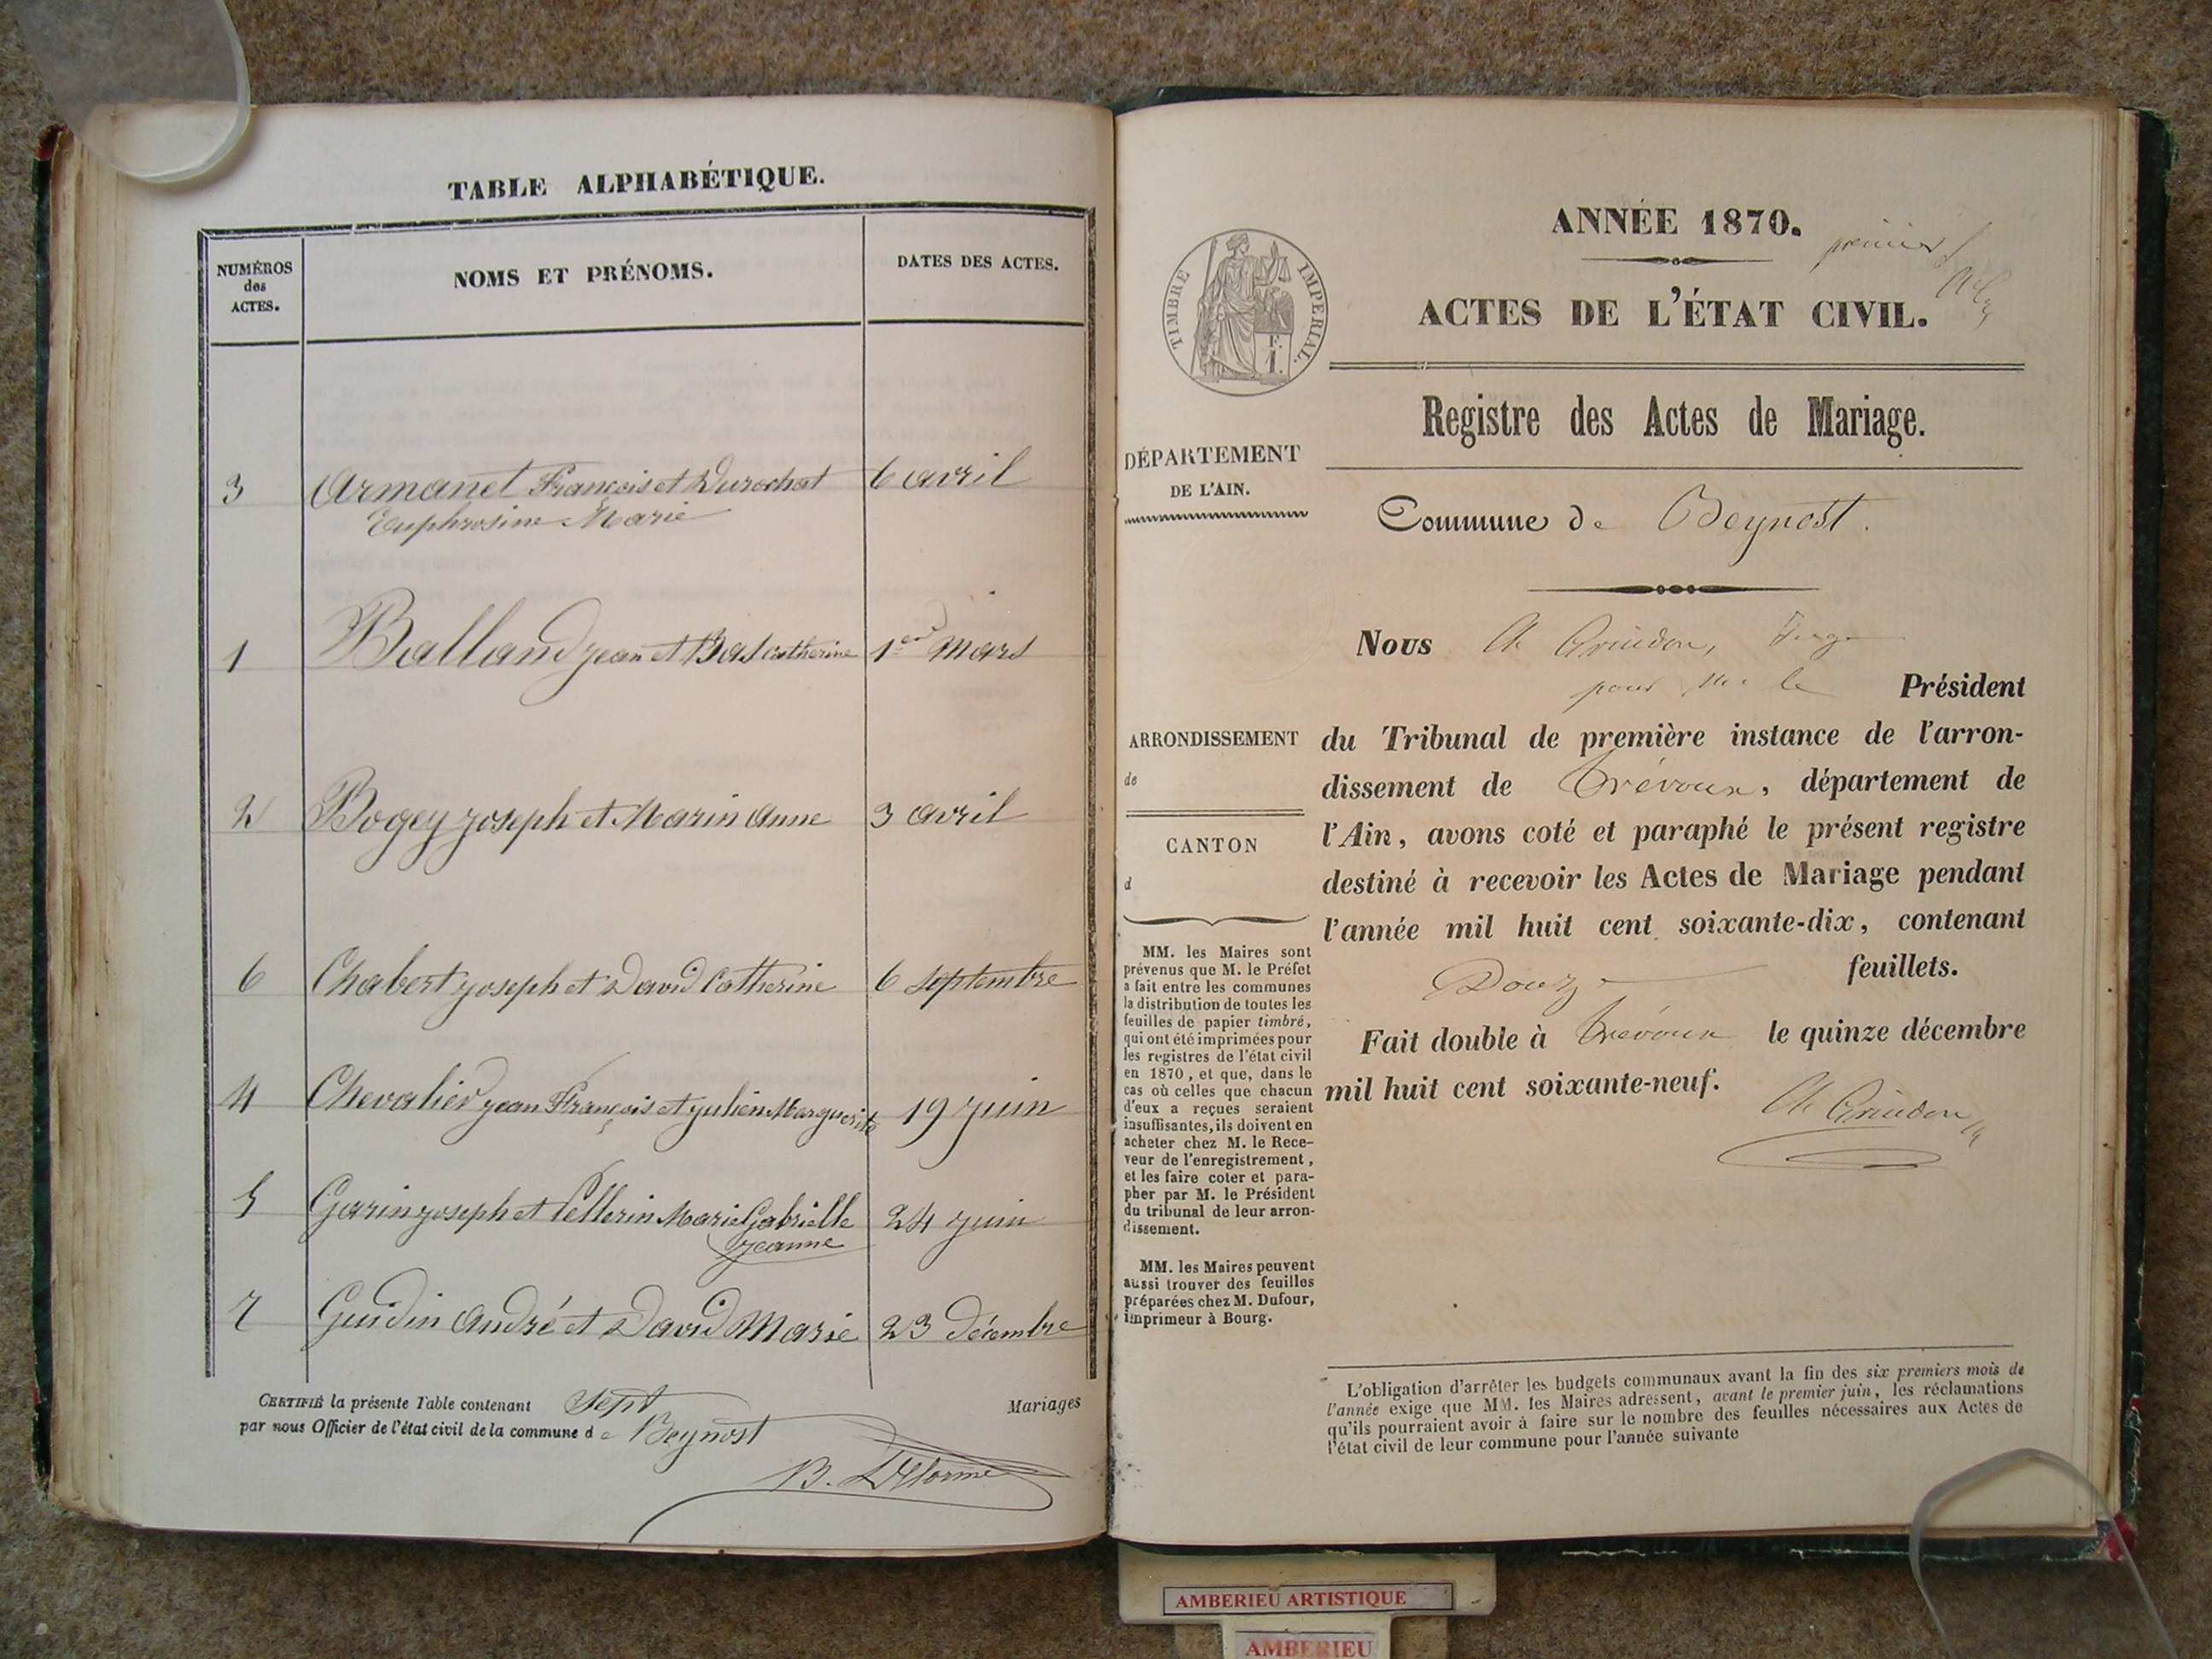 TABLE ALPHABÉTIQUE.
NUMÉROS
des
ACTES.
NOMS ET PRÉNOMS.
DATES DES ACTES.
3 Armanet François et Durochat 6 avril
Euphrosine Marie
1 Balland jean et Bas catherine 1er Mars
2 Bogey joseph et Marin Anne 3 avril
6 Chabert joseph et David Catherine 6 septembre
4 Chevalier jean François et julien Marguerite 19 juin
5 Garin joseph et Pellerin Marie Gabrielle 24 juin
jeanne
7 Guidin André et David Marie 23 décembre
CERTIFIÉ la présente Table contenant Sept Mariages
par nous Officier de l'état civil de la commune de Beynost
B. Delorme
ANNÉE 1870.
premier
ACTES DE L'ÉTAT CIVIL.
TIMBRE IMPERIAL.
F.
1.
Registre des Actes de Mariage.
DÉPARTEMENT
DE L'AIN.
Commune de Beynost.
Nous Ch Grindon, Juge
pour M. le Président
ARRONDISSEMENT
de
CANTON
d
du Tribunal de première instance de l'arron-
dissement de Trévoux, département de
l'Ain, avons coté et paraphé le présent registre
destiné à recevoir les Actes de Mariage pendant
l'année mil huit cent soixante-dix, contenant
Douze feuillets.
Fait double à Trévoux le quinze décembre
mil huit cent soixante-neuf.
Ch Grindon
MM. les Maires sont
prévenus que M. le Préfet
a fait entre les communes
la distribution de toutes les
feuilles de papier timbré,
qui ont été imprimées pour
les registres de l'état civil
en 1870, et que, dans le
cas où celles que chacun
d'eux a reçues seraient
insuffisantes, ils doivent en
acheter chez M. le Rece-
veur de l'enregistrement,
et les faire coter et para-
pher par M. le Président
du tribunal de leur arron-
dissement.
MM. les Maires peuvent
aussi trouver des feuilles
préparées chez M. Dufour,
imprimeur à Bourg.
L'obligation d'arrêter les budgets communaux avant la fin des six premiers mois de
l'année exige que MM. les Maires adressent, avant le premier juin, les réclamations
qu'ils pourraient avoir à faire sur le nombre des feuilles nécessaires aux Actes de
l'état civil de leur commune pour l'année suivante
AMBERIEU ARTISTIQUE
AMBERIEU